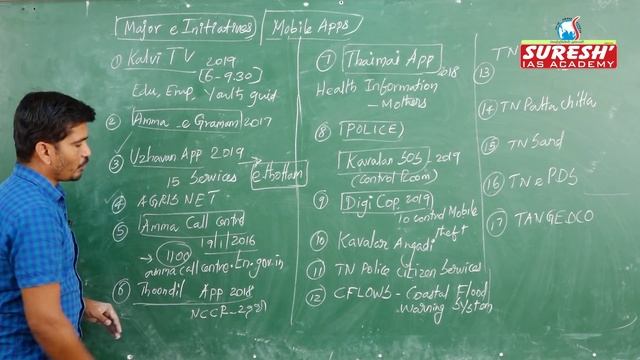 Major e Initiatives
Mobile Apps
1) Kalvi TV 2019
[6-9.30]
Edu, Emp, Youth guid
2 Amma e Gramam 2017
3 Uzhavan App 2019
15 Services
e thottam
4 AGRIS NET
5 Amma Call Centre
19/1/2016
→ 1100
amma call centre.tn.gov.in
6 Thoondil App 2018
NCCR
7 Thaimai App 2018
Health Information
- Mothers
8 POLICE
Kavalan SOS - 2019
(Control Room)
9 Digi Cop 2019
To control Mobile
theft
10 Kavalar Angadi
11 TN Police Citizen Services
12 CFLOWS - Coastal Flood
Warning System
13 TN
14 TN Patta Chitta
15 TN Sand
16 TN e PDS
17 TANGEDCO
SURESH'
IAS ACADEMY